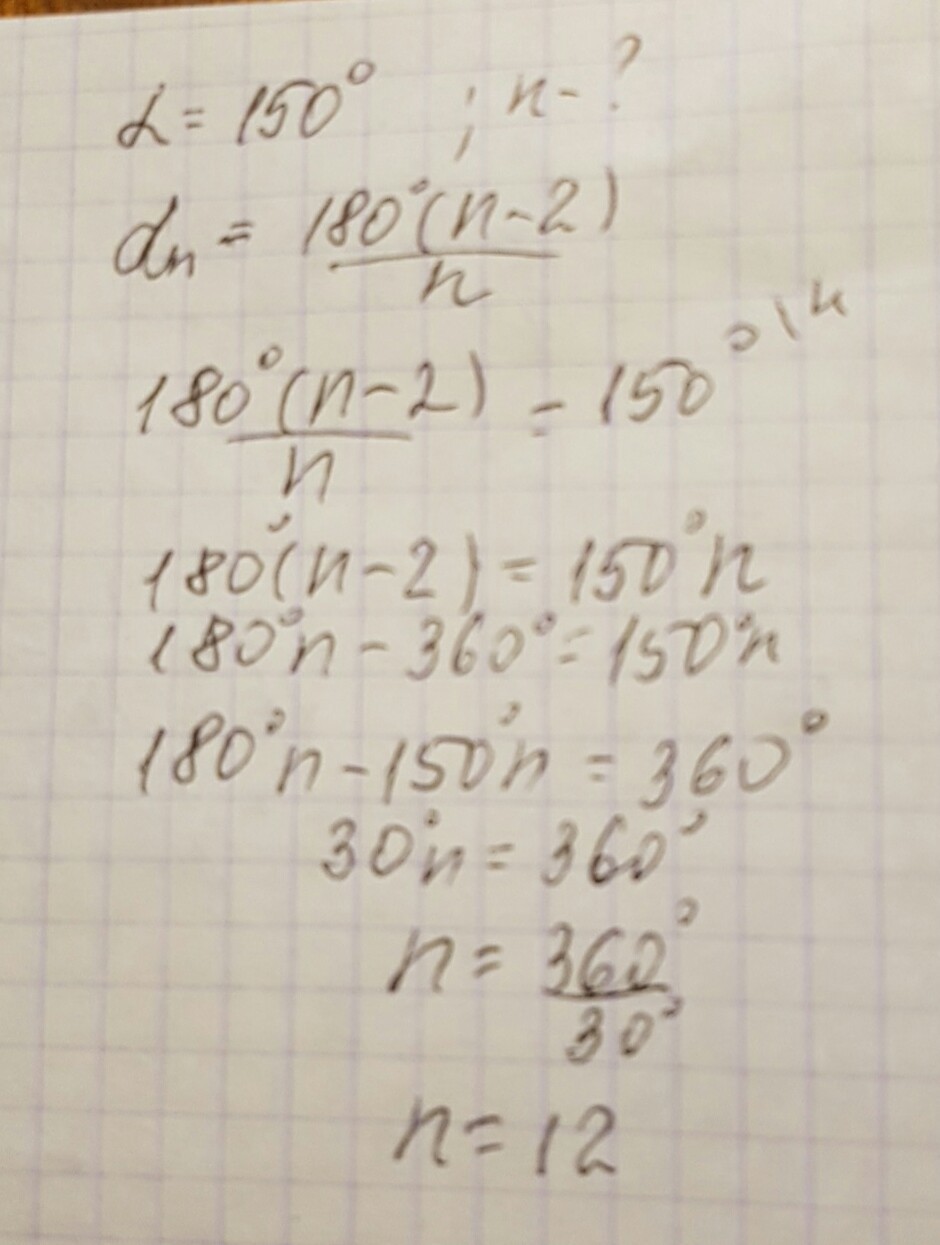 α = 150° ; n - ?
αn = 180°(n-2)/n
180°(n-2)/n = 150° | n
180°(n-2) = 150°n
180°n - 360° = 150°n
180°n - 150°n = 360°
30°n = 360°
n = 360°/30°
n = 12